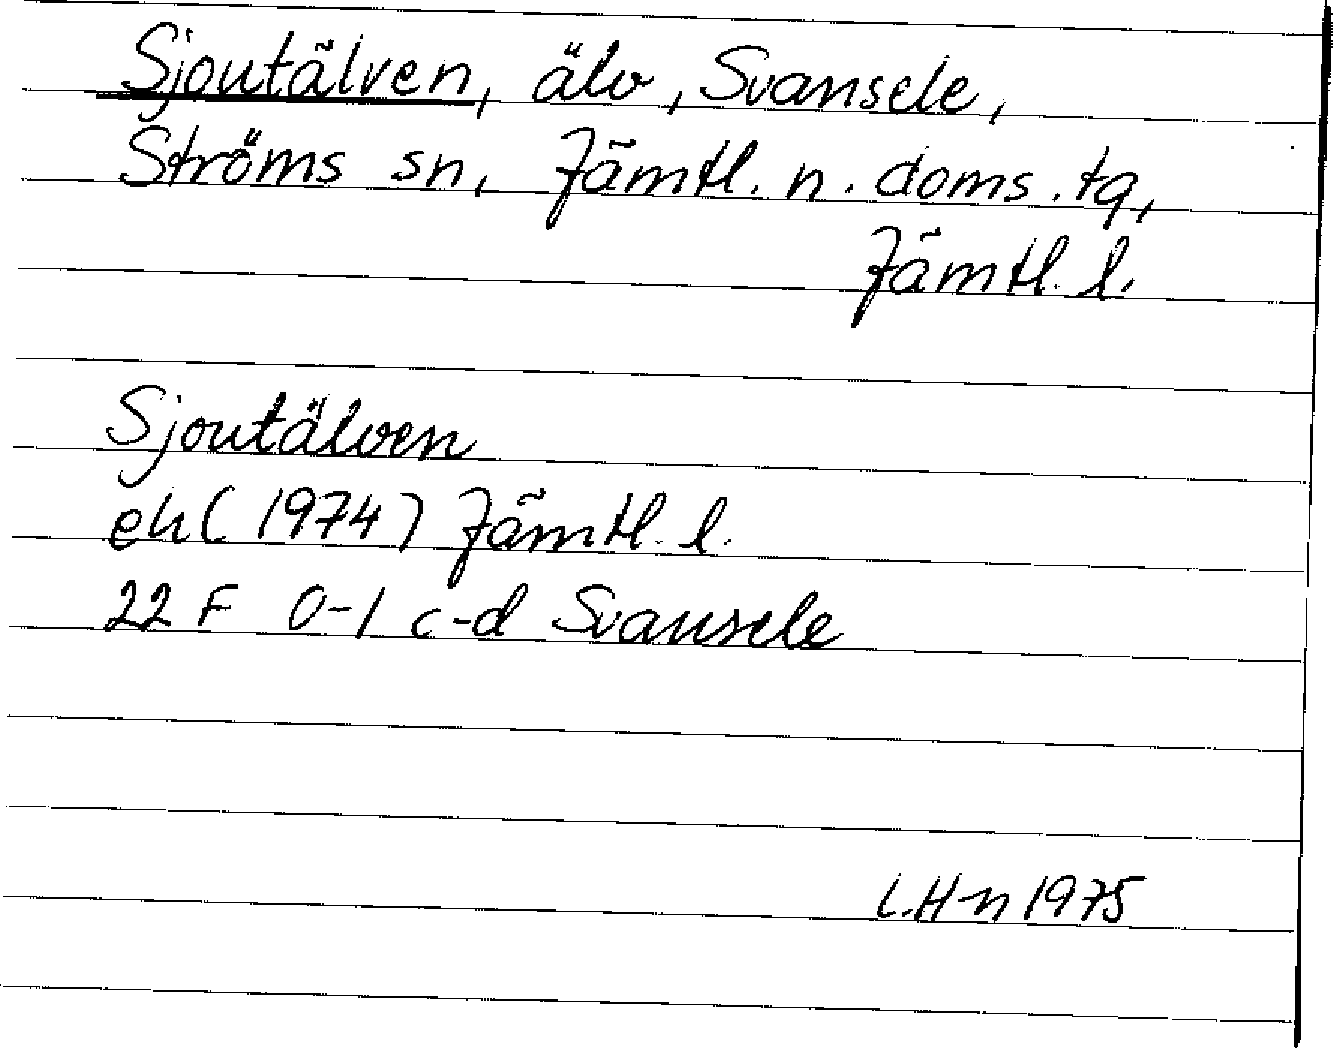 Sjoutälven, älv, Svansele,
Ströms sn, Jämtl. n. doms. tg,
Jämtl. l.
Sjoutälven
ek (1974) Jämtl. l.
22 F 0-1 c-d Svansele
L.H-n 1975